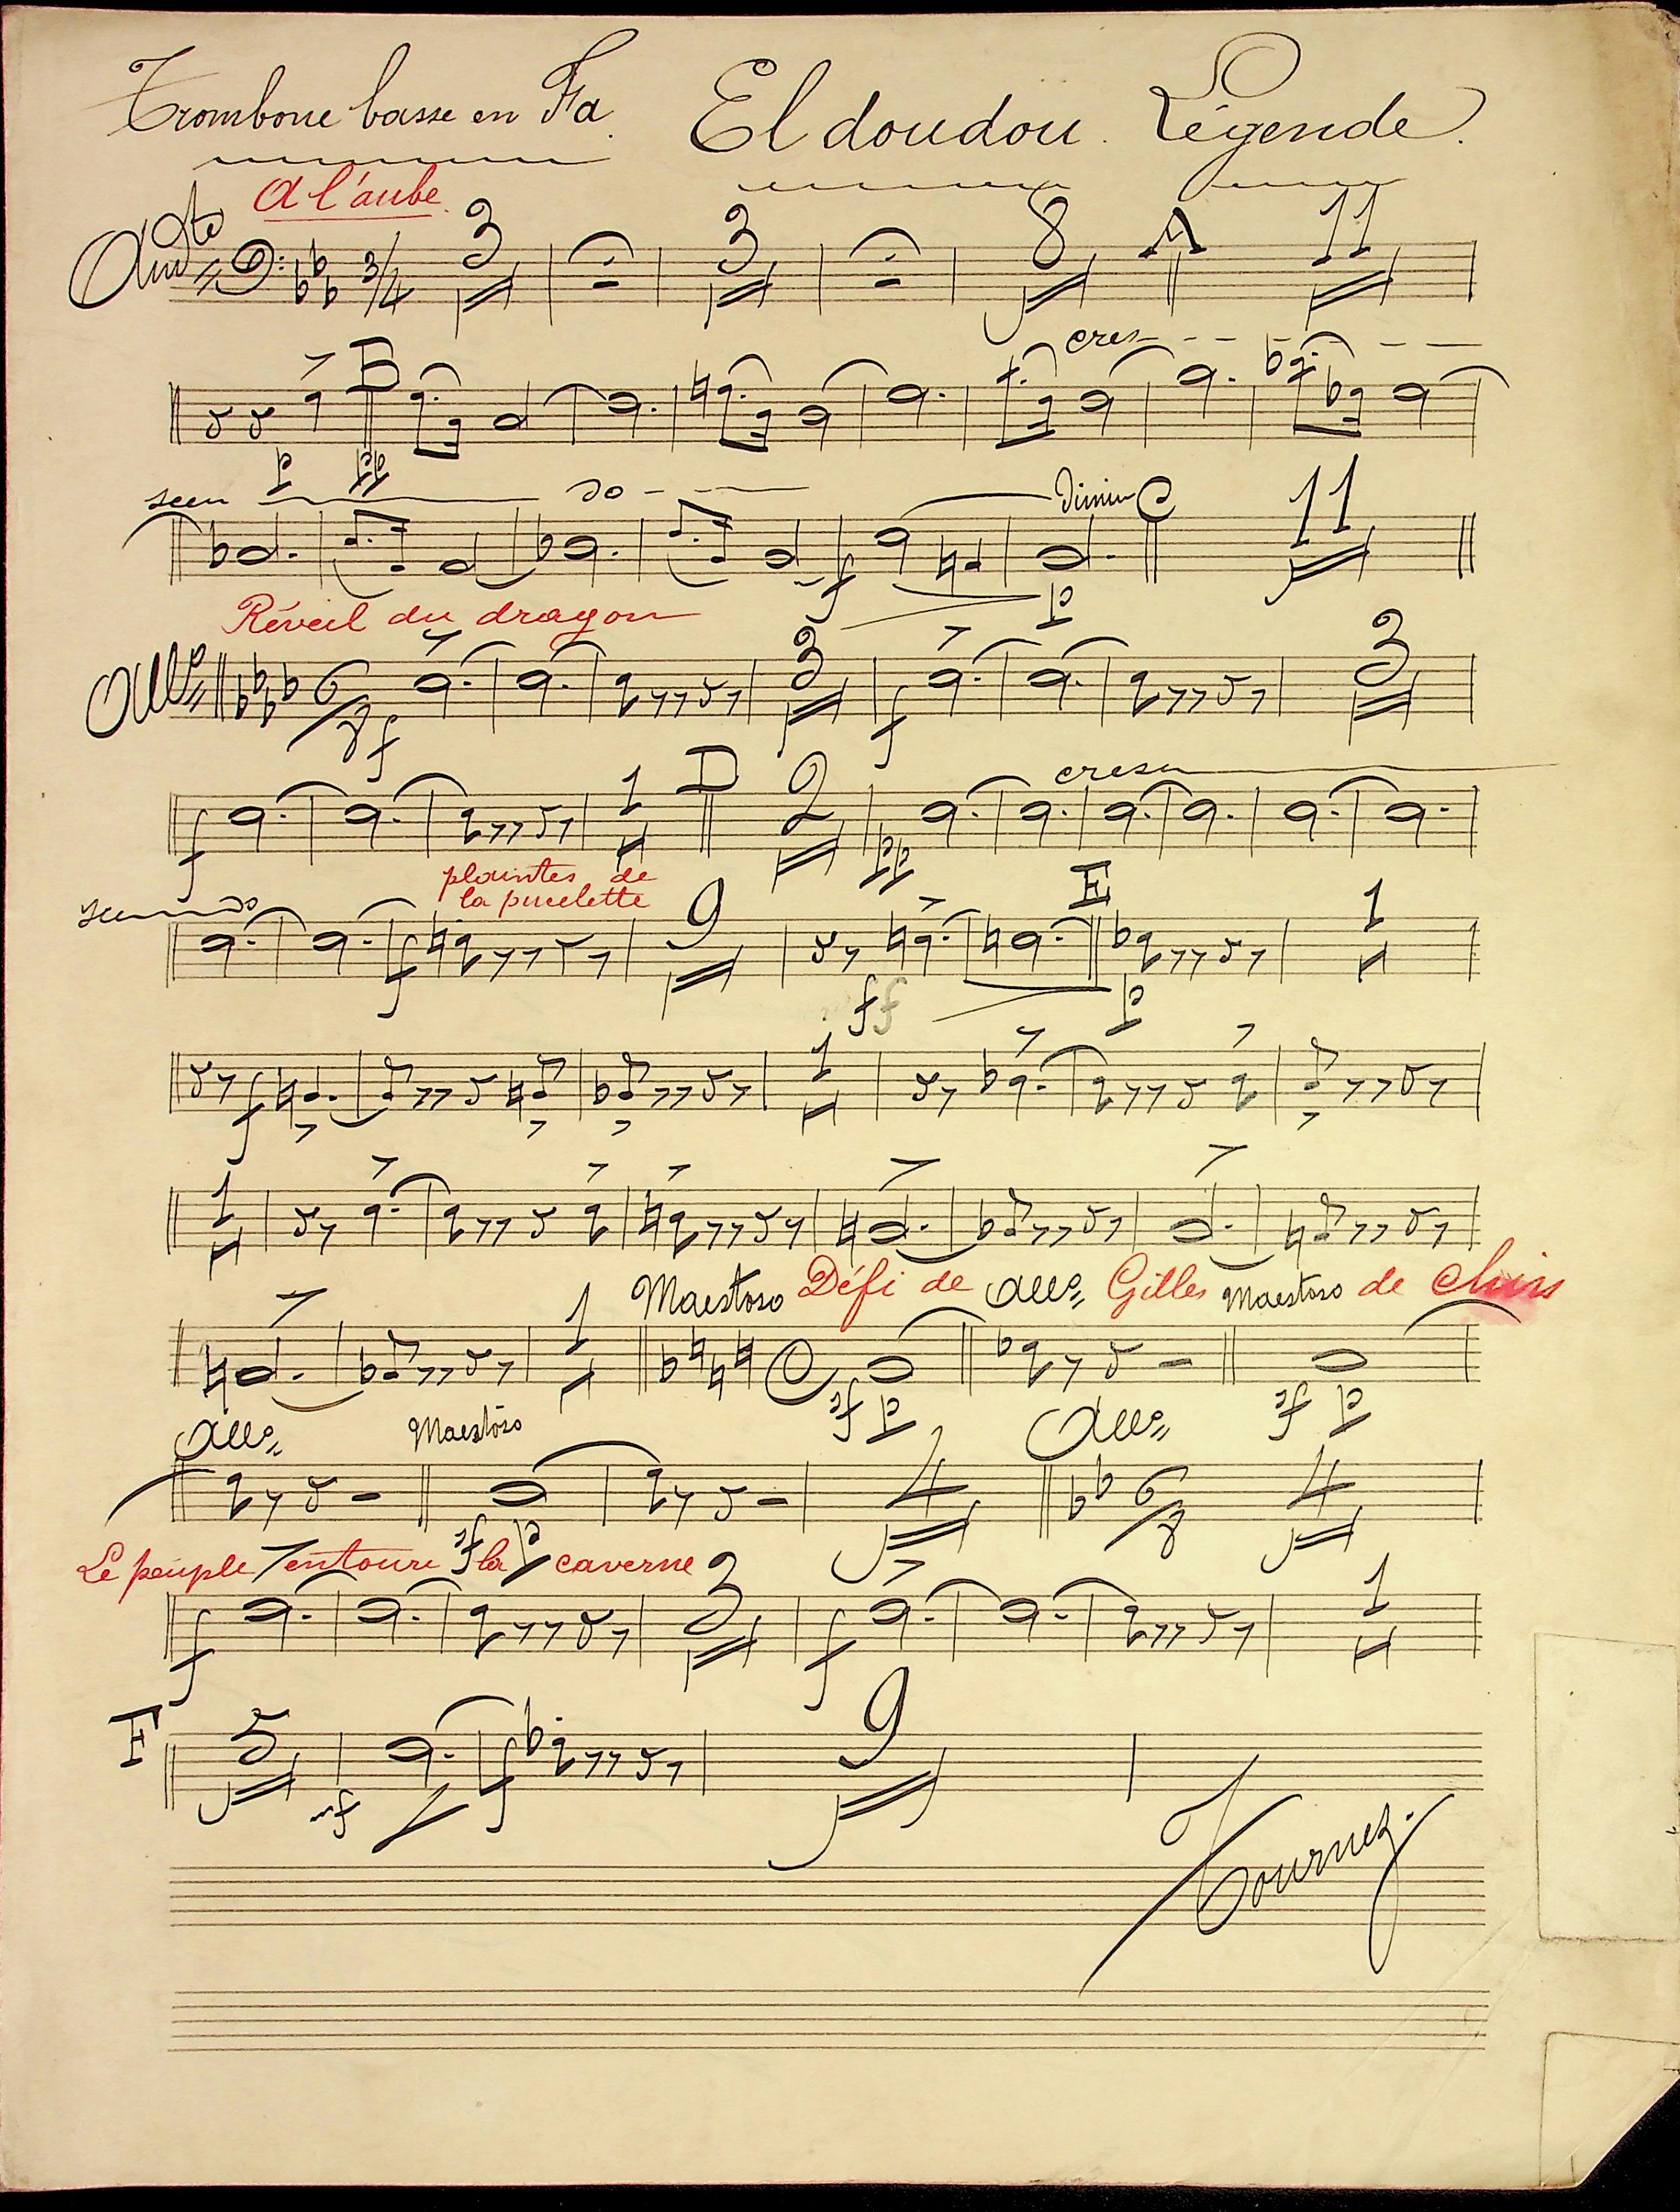 Trombone basse en Fa. El doudou. Légende.
A l'aube.
Andte 3/4 3 3 8 A 11
cres
B
p pp
scen do dimin C 11
f p
Réveil du dragon
Allo 6/8 f 3 f 3
f 1 D 2 pp cresn
plaintes de
la pucelette
scen do f 9 ff E p 1
f 1
1
Maestoso Défi de Allo Gilles Maestoso de Chin
1 C sf p sf p
Allo Maestoso Allo
sf p 4 6/8 4
Le peuple entoure la caverne
f 3 f 1
F 5 mf f 9
Tournez.